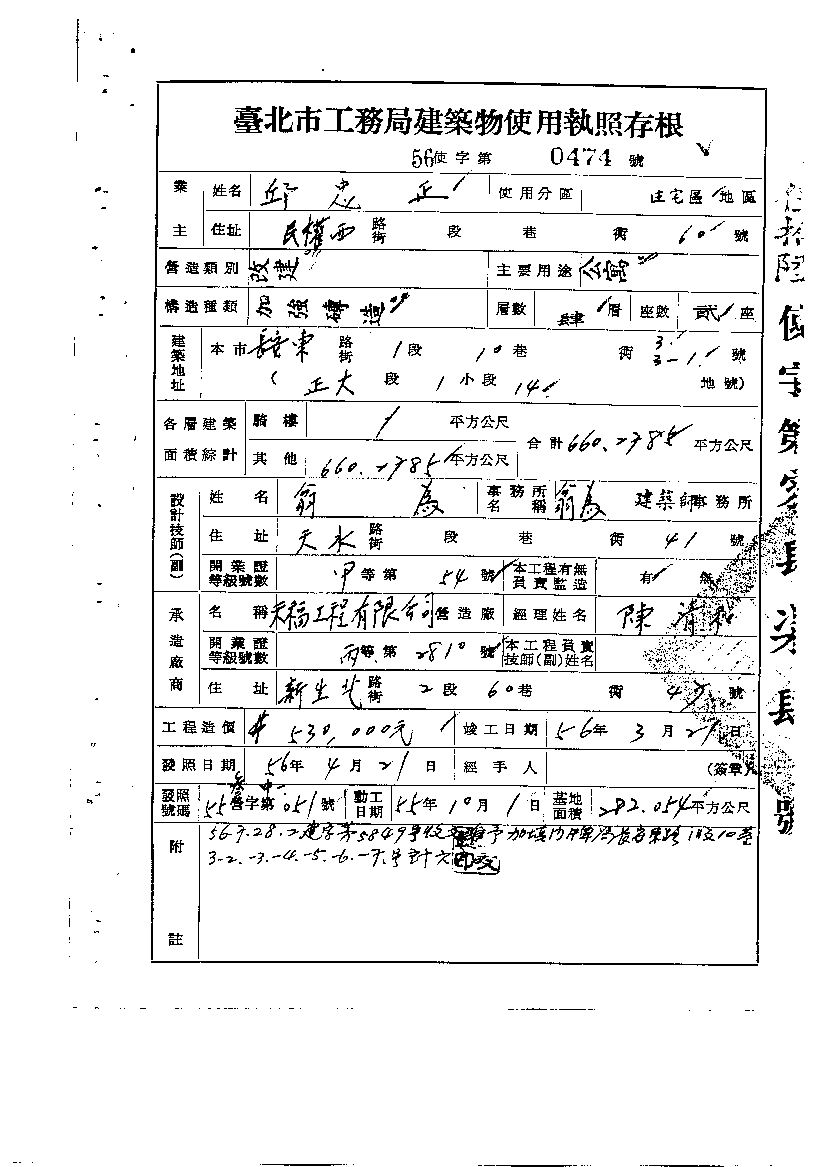 臺北市工務局建築物使用執照存根
56使字第 0474 號
業主 姓名 邱忠正 使用分區 住宅區 地區
住址 民權西 路街 段 巷 街 60 號
營造類別 改建 主要用途 公寓
構造種類 加強磚造 層數 肆 層 座數 貳 座
建築地址 本市 長安東 路街 1段 10巷 街 3. 3-1. 號
(正大 段 1小段 14 地號)
各層建築面積綜計 騎樓 平方公尺 合計 660.2785 平方公尺
其他 660.2785 平方公尺
設計技師(副) 姓名 翁為 事務所名稱 翁為 建築師事務所
住址 天水 路街 段 巷 街 41 號
開業證等級號數 甲等第 54 號 本工程有無負責監造 有 無
承造廠商 名稱 天福工程有限公司 營造廠 經理姓名 陳清
開業證等級號數 丙等第 2810 號 本工程負責技師(副)姓名
住址 新生北 路街 2段 60巷 街 號
工程造價 530,000元 竣工日期 56年 3月 21日
發照日期 56年 4月 21日 經手人 (簽章)
發照號碼 55營字第051號 動工日期 55年10月1日 基地面積 282.054平方公尺
附註 56.7.28.
3-2.-3.-4.-5.-6.-7.號計六
使字第 號